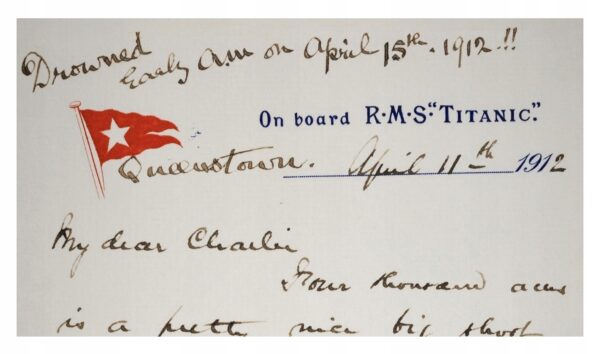 Drowned
Early A.M on April 15th. 1912!!
On board R·M·S·"TITANIC."
Queenstown. April 11th 1912
My dear Charlie
Four thousand acres
is a pretty nice big shoot